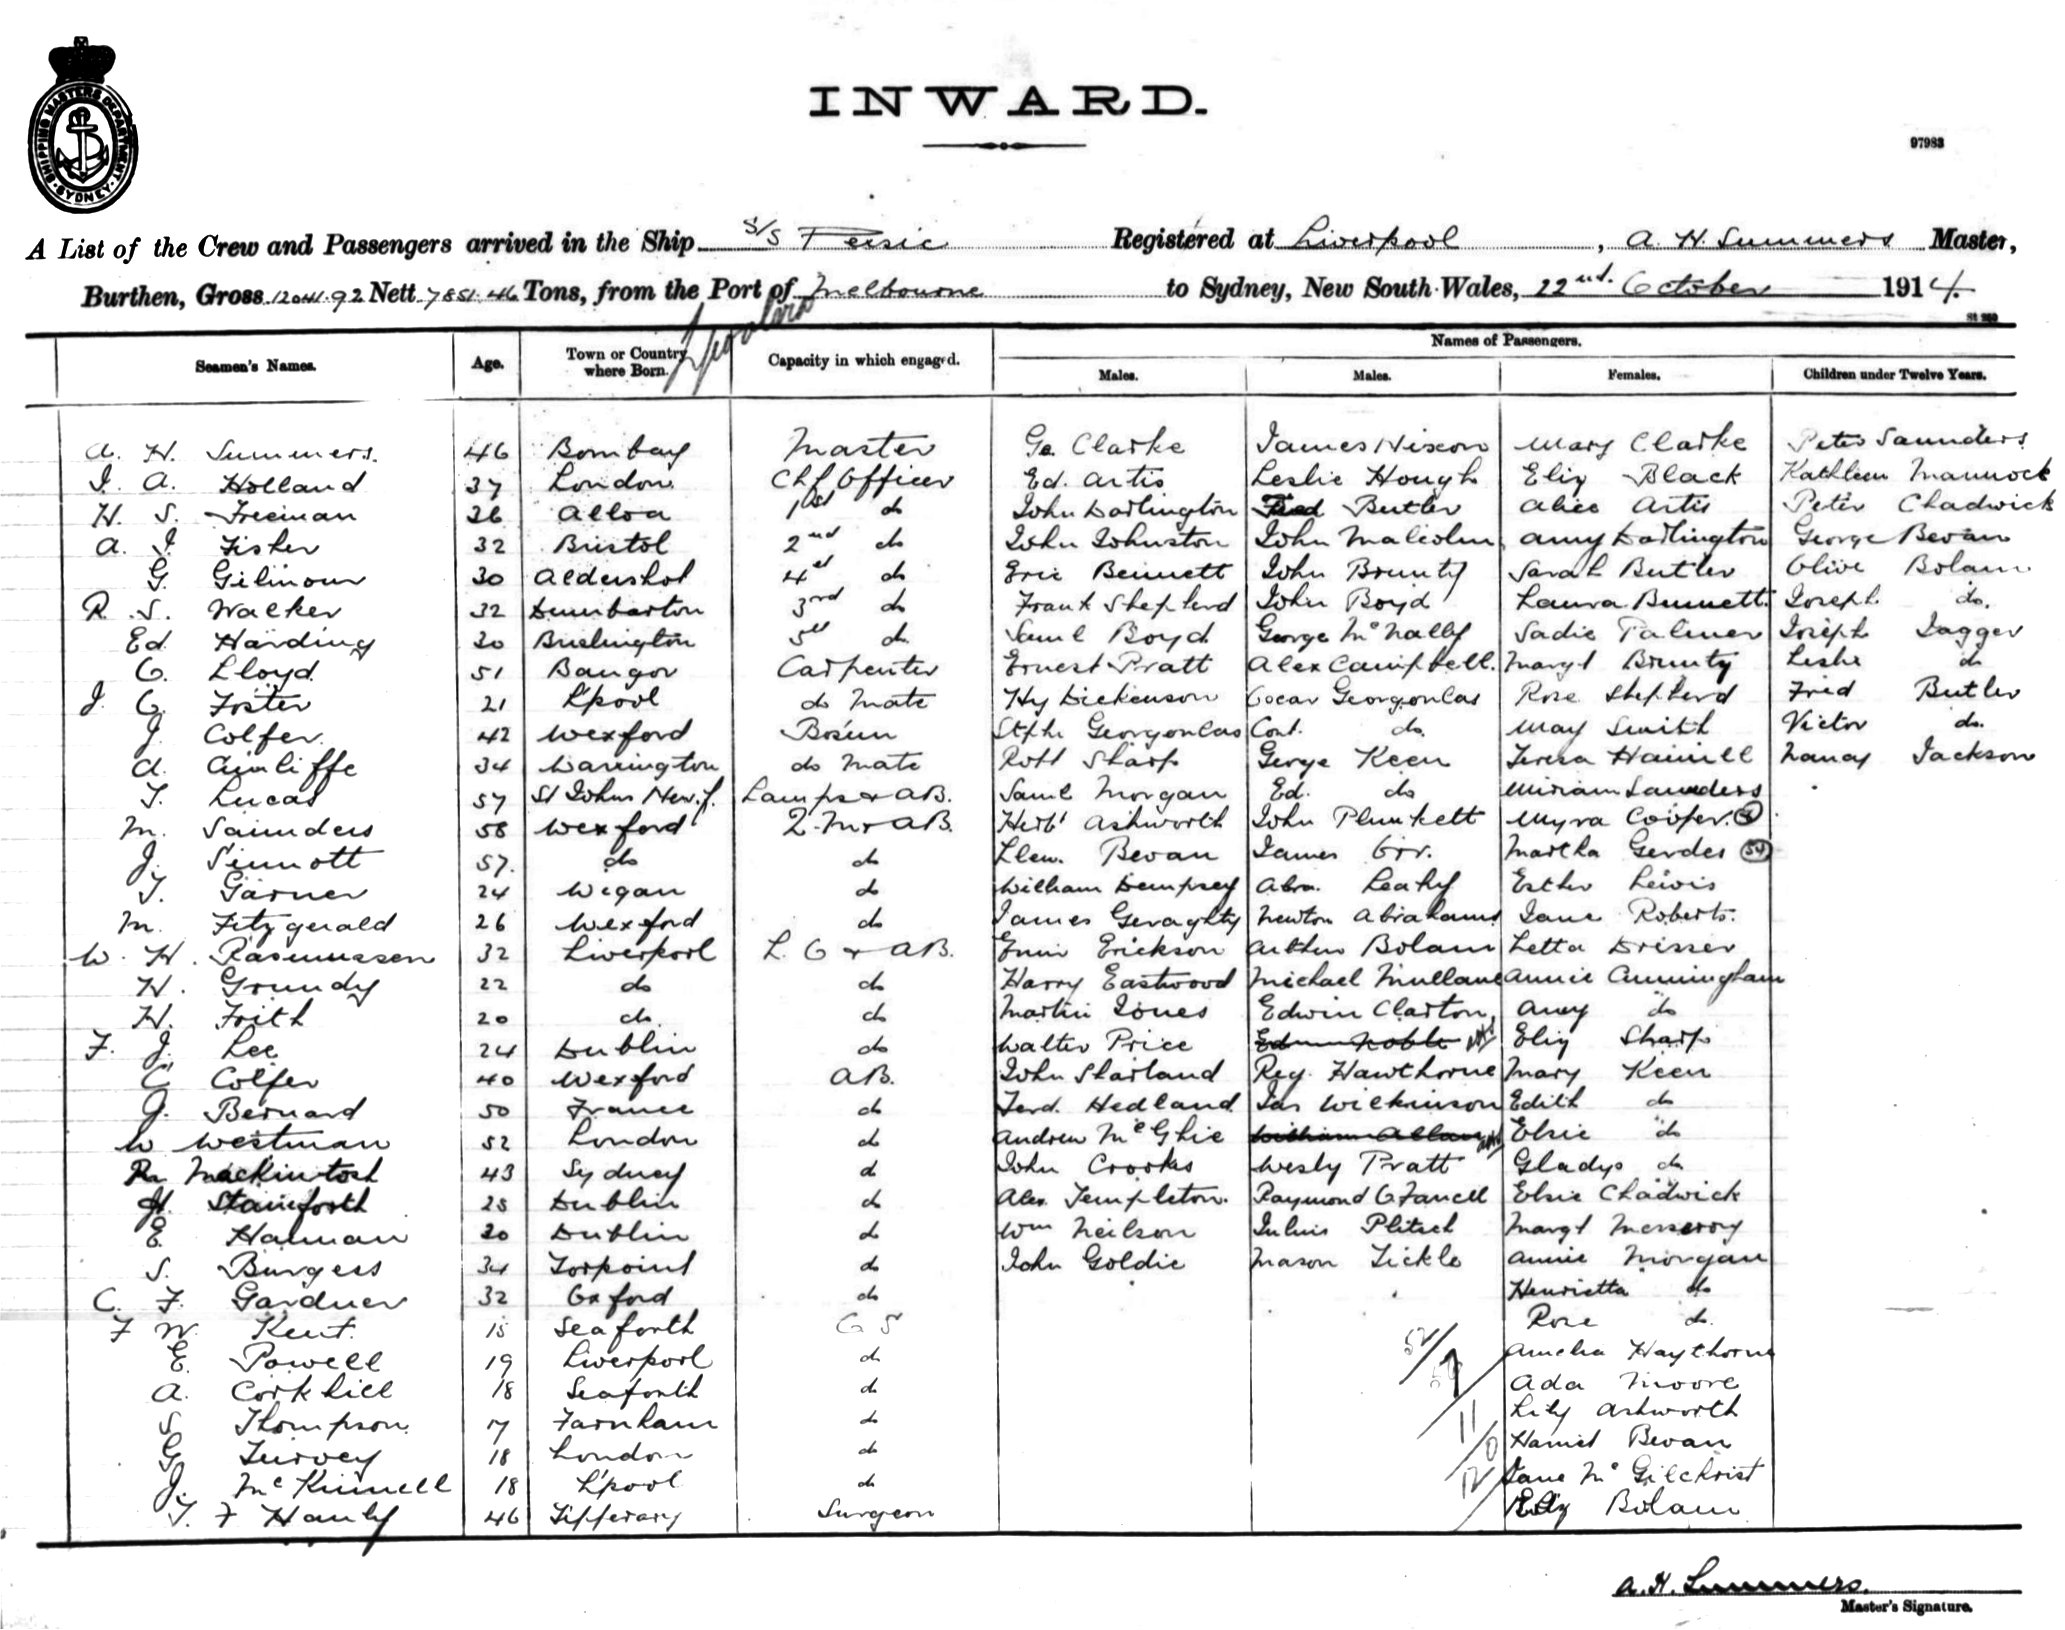 SHIPPING MASTERS DEPARTMENT · SYDNEY ·
INWARD.
97983
A List of the Crew and Passengers arrived in the Ship S/S Persic Registered at Liverpool, A. H. Summers Master,
Burthen, Gross 12041.92 Nett 7851.46 Tons, from the Port of Melbourne to Sydney, New South Wales, 22nd. October 1914.
Seamen's Names. Age. Town or Country where Born. Capacity in which engaged. Names of Passengers.
Males. Males. Females. Children under Twelve Years.
A. H. Summers. 46 Bombay Master Ge. Clarke James Nixon Mary Clarke Peter Saunders
J. A. Holland 37 London Chf Officer Ed. Artis Leslie Hough Eliz Black Kathleen Mannock
H. S. Freeman 26 Alloa 1st do John Darlington Fred Butler Alice Artis Peter Chadwick
A. J. Fisher 32 Bristol 2nd do John Johnston John Malcolm Amy Darlington George Bevan
G. Gilmour 30 Aldershot 4th do Eric Bennett John Brunty Sarah Butler Olive Bolam
R. S. Walker 32 Dumbarton 3rd do Frank Shepherd John Boyd Laura Bennett Joseph do.
Ed Harding 30 5th do. Saml Boyd George McNally Sadie Palmer Joseph Jagger
C. Lloyd 51 Bangor Carpenter Ernest Pratt Alex Campbell. Margt Brunty Leslie do
J. C. Foster 21 L'pool do Mate Hy Dickenson Oscar Georgoulas Rose Shepherd Fred Butler
J. Colfer. 42 Wexford Bosun Stphn Georgoulas Cont. do. May Smith Victor do.
A. Aincliffe 34 Warrington do Mate Robt Sharp George Keen Teresa Hamill Nancy Jackson
T. Lucas 57 St Johns New.f. Lamps & AB. Saml Morgan Ed. do Miriam Saunders
M. Saunders 58 Wexford 2.M & AB. Herbt Ashworth John Plunkett Myra Cooper.
J. Sinnott 57. do do Llew. Bevan James Orr. Martha Gerdes
T. Garner 24 Wigan do William Dempsey Abm. Leahy Esther Lewis
M. Fitzgerald 26 Wexford do James Geraghty Newton Abrahams Jane Roberts.
W. H. Rasmussen 32 Liverpool L. O & AB. Erickson Arthur Bolam Letta Drisser
H. Grundy 22 do do Harry Eastwood Michael Mullane Annie Cunningham
H. Frith 20 do. do Martin Jones Edwin Clarton, Amy do
F. J. Lee 24 Dublin do Walter Price Edm Noble Eliz Sharp
C Colfer 40 Wexford AB. John Sharland Reg. Hawthorne Mary Keen
J. Bernard 50 France do Ferd. Hedland Jas Wilkinson Edith do
W Westman 52 London do Andrew McGhie William Allan Elsie do
R. Mackintosh 43 Sydney do John Crooks Wesly Pratt Gladys do
H. Staniforth 25 Dublin do Alex Templeton. Raymond O Fanell Elsie Chadwick
E. Halman 30 Dublin do Wm Neilson Julius Plitsch Margt
S. Burgess 34 Torpoint do John Goldie Mason Tickle Annie Morgan
C. F. Gardner 32 Oxford do Henrietta do
F W. Kent. 15 Seaforth O S Rose do.
E. Powell 19 Liverpool do 52/ Amelia Haythorne
A. Corkhill 18 Seaforth do Ada Moore
S. Thompson 17 Farnham do 11 Lily Ashworth
G Turvey 18 London do Harriet Bevan
J. McKinnell 18 L'pool do 120 Jane McGilchrist
T. F Hanly 46 Tipperary Surgeon Eliz Bolam
A. H. Summers.
Master's Signature.